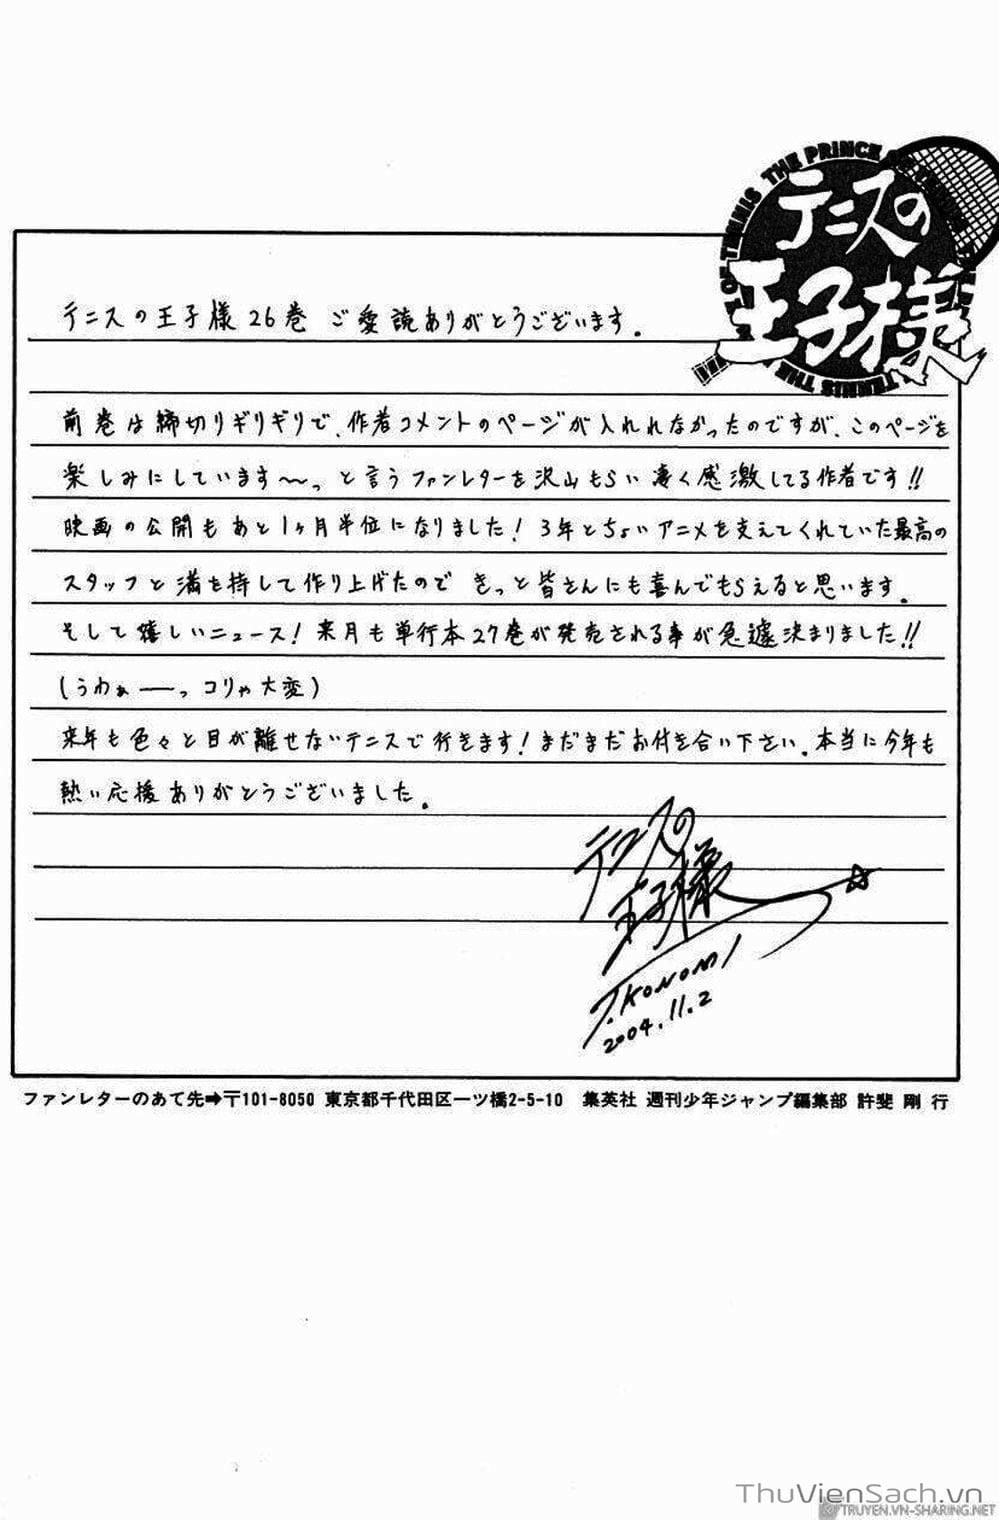 THE PRINCE OF TENNIS THE PRINCE OF TENNIS
テニスの
王子様
テニスの王子様26巻 ご愛読ありがとうございます。
前巻は締切りギリギリで、作者コメントのページが入れれなかったのですが、このページを
楽しみにしています〜っと言うファンレターを沢山もらい凄く感激してる作者です!!
映画の公開もあと1ヶ月単位になりました! 3年とちょいアニメを支えてくれていた最高の
スタッフと満を持して作り上げたので きっと皆さんにも喜んでもらえると思います。
そして嬉しいニュース! 来月も単行本27巻が発売される事が急遽決まりました!!
(うわぁーーっ コリゃ大変)
来年も色々と目が離せないテニスで行きます! まだまだお付き合い下さい。本当に今年も
熱い応援ありがとうございました。
テニスの
王子様
T.KONOMI
2004.11.2
ファンレターのあて先➡〒101-8050 東京都千代田区一ツ橋2-5-10 集英社 週刊少年ジャンプ編集部 許斐 剛 行
ThuVienSach.vn
TRUYEN.VN-SHARING.NET